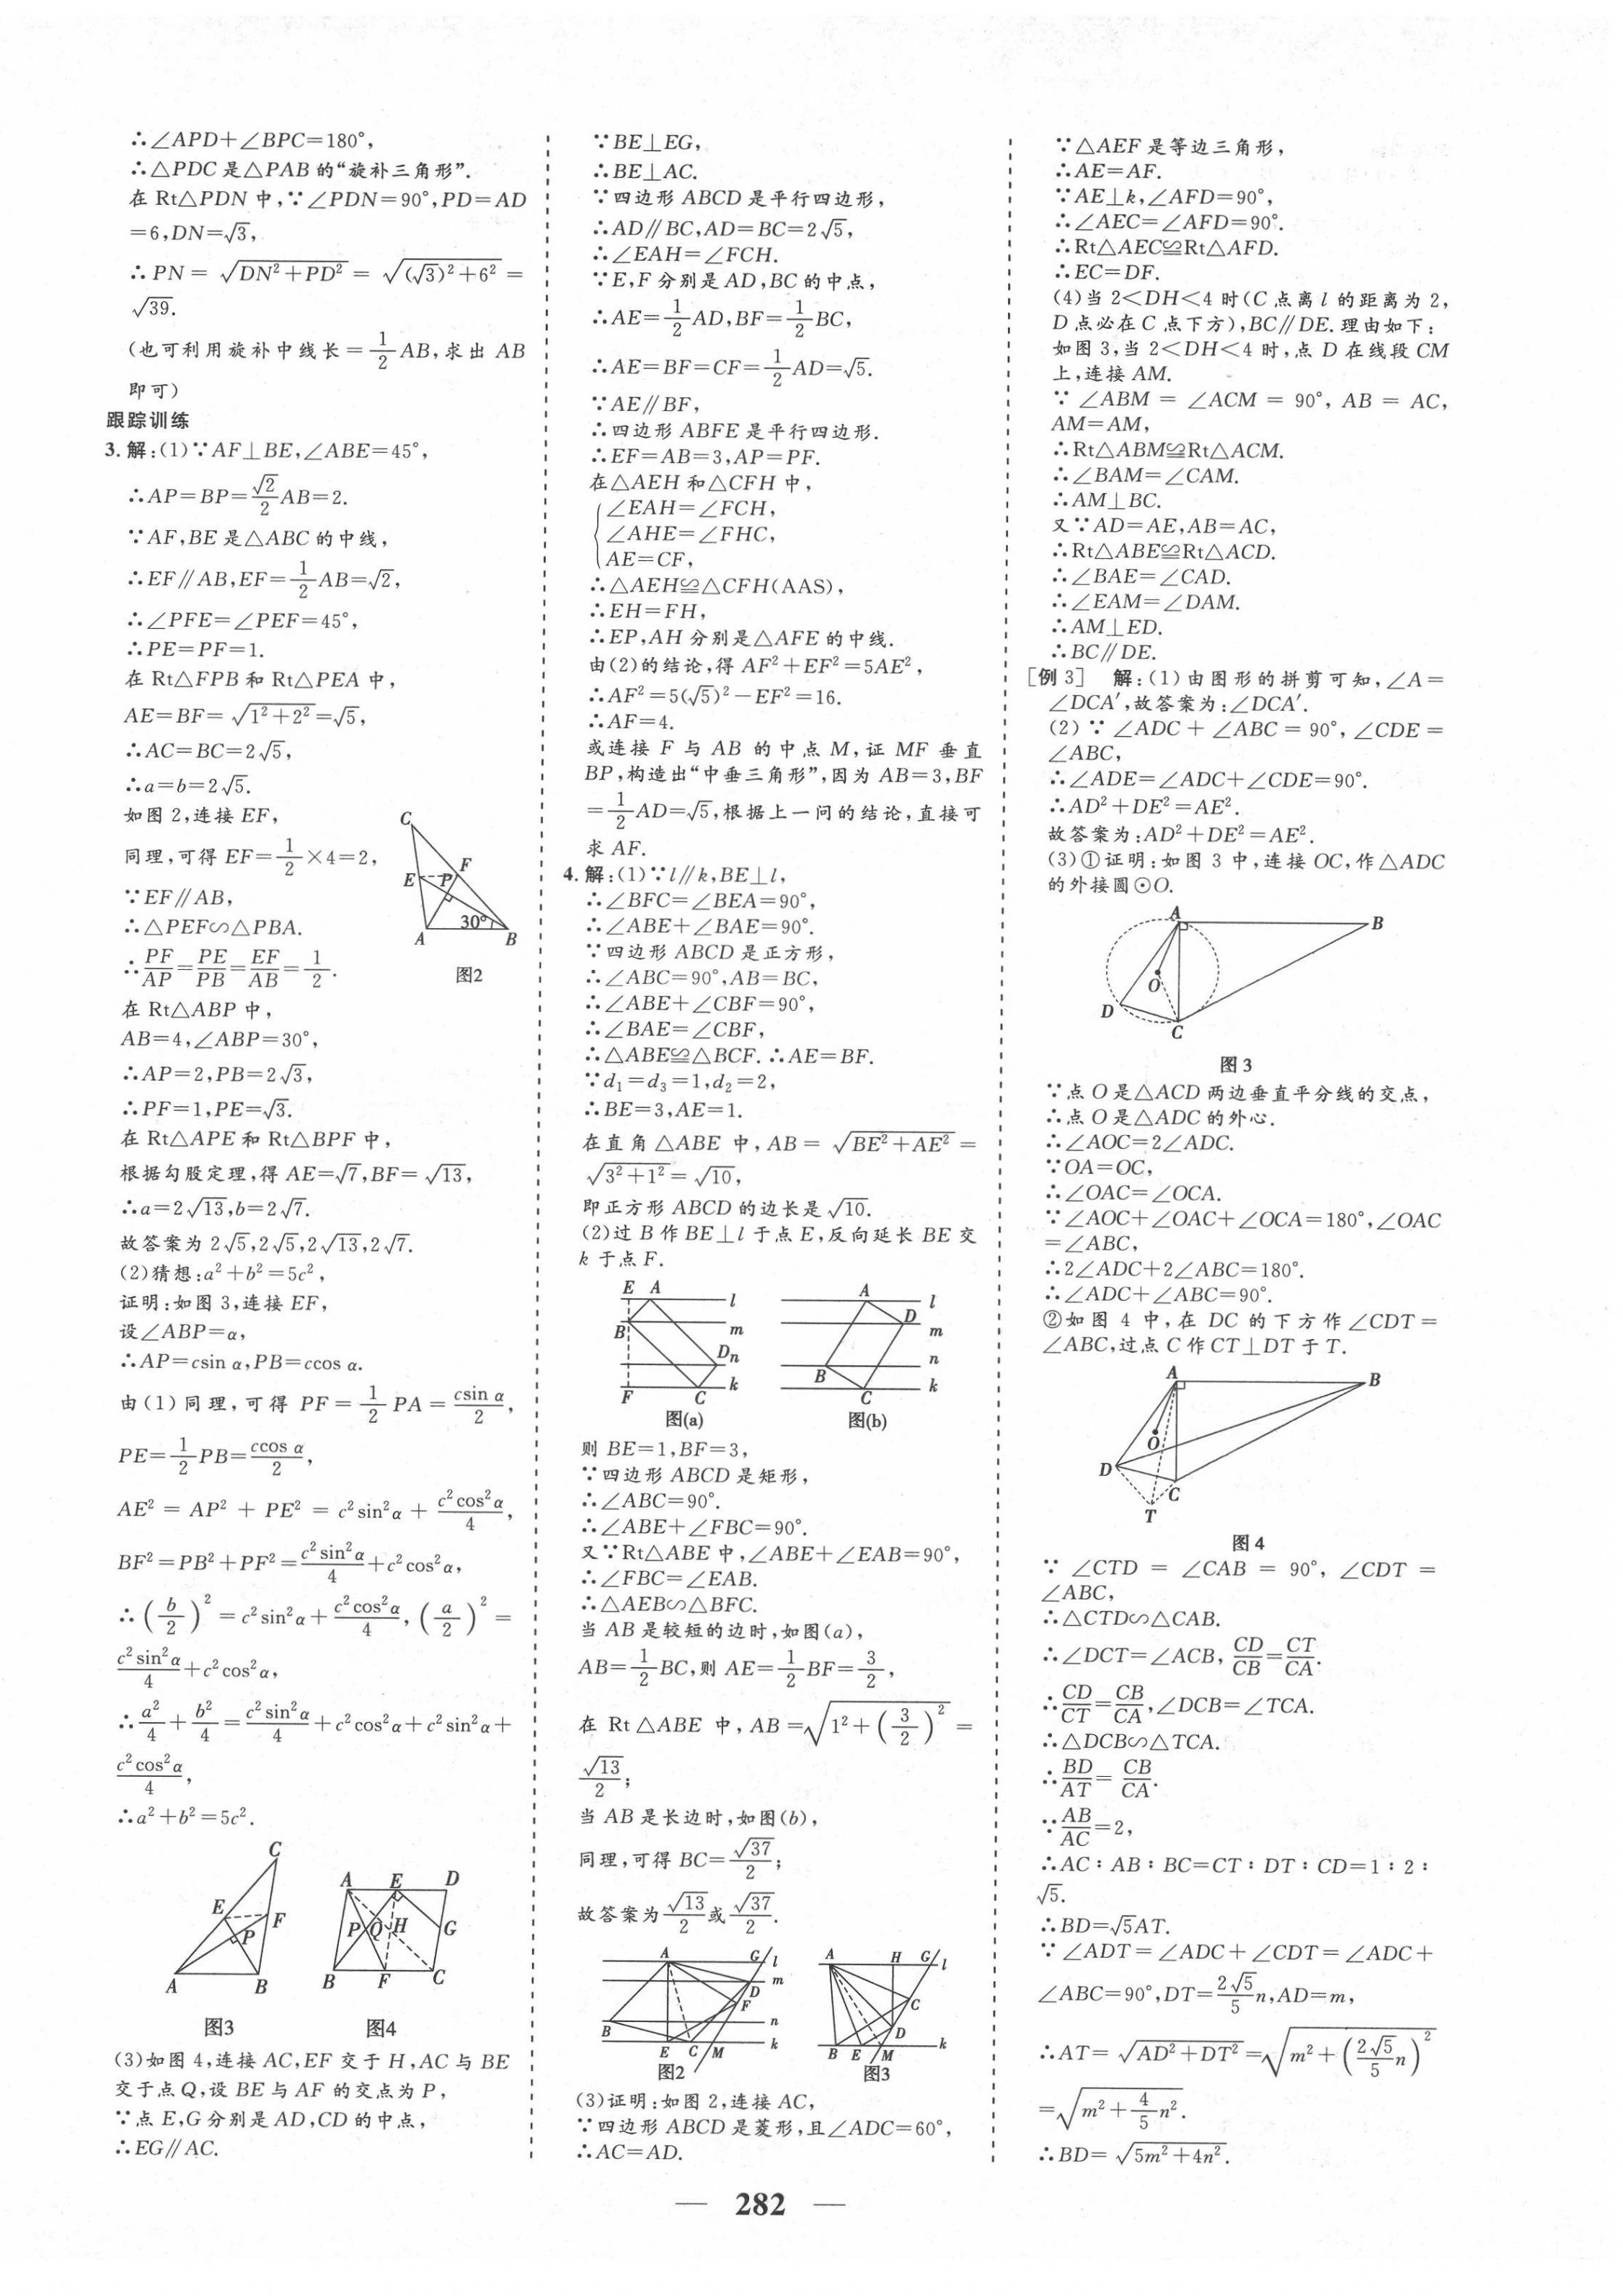 ∴∠APD+∠BPC=180°,
∴△PDC是△PAB的“旋补三角形”.
在Rt△PDN中,∵∠PDN=90°,PD=AD
=6,DN=√3,
∴PN=√(DN²+PD²)=√((√3)²+6²)=
√39.
(也可利用旋补中线长=1/2AB,求出AB
即可)
跟踪训练
3.解:(1)∵AF⊥BE,∠ABE=45°,
∴AP=BP=√2/2AB=2.
∵AF,BE是△ABC的中线,
∴EF∥AB,EF=1/2AB=√2,
∴∠PFE=∠PEF=45°,
∴PE=PF=1.
在Rt△FPB和Rt△PEA中,
AE=BF=√(1²+2²)=√5,
∴AC=BC=2√5,
∴a=b=2√5.
如图2,连接EF,
同理,可得EF=1/2×4=2,
∵EF∥AB,
∴△PEF∽△PBA.
∴PF/AP=PE/PB=EF/AB=1/2.
在Rt△ABP中,
AB=4,∠ABP=30°,
∴AP=2,PB=2√3,
∴PF=1,PE=√3.
在Rt△APE和Rt△BPF中,
根据勾股定理,得AE=√7,BF=√13,
∴a=2√13,b=2√7.
故答案为2√5,2√5,2√13,2√7.
(2)猜想:a²+b²=5c²,
证明:如图3,连接EF,
设∠ABP=α,
∴AP=csin α,PB=ccos α.
由(1)同理,可得PF=1/2PA=csin α/2,
PE=1/2PB=ccos α/2,
AE²=AP²+PE²=c²sin²α+c²cos²α/4,
BF²=PB²+PF²=c²sin²α/4+c²cos²α,
∴(b/2)²=c²sin²α+c²cos²α/4,(a/2)²=
c²sin²α/4+c²cos²α,
∴a²/4+b²/4=c²sin²α/4+c²cos²α+c²sin²α+
c²cos²α/4,
∴a²+b²=5c².
C
F
E
P
30°
A
B
图2
C
E
F
P
A
B
图3
A
E
D
P
Q
H
G
B
F
C
图4
(3)如图4,连接AC,EF交于H,AC与BE
交于点Q,设BE与AF的交点为P,
∵点E,G分别是AD,CD的中点,
∴EG∥AC.
∵BE⊥EG,
∴BE⊥AC.
∵四边形ABCD是平行四边形,
∴AD∥BC,AD=BC=2√5,
∴∠EAH=∠FCH.
∵E,F分别是AD,BC的中点,
∴AE=1/2AD,BF=1/2BC,
∴AE=BF=CF=1/2AD=√5.
∵AE∥BF,
∴四边形ABFE是平行四边形.
∴EF=AB=3,AP=PF.
在△AEH和△CFH中,
∠EAH=∠FCH,
∠AHE=∠FHC,
AE=CF,
∴△AEH≌△CFH(AAS),
∴EH=FH,
∴EP,AH分别是△AFE的中线.
由(2)的结论,得AF²+EF²=5AE²,
∴AF²=5(√5)²-EF²=16.
∴AF=4.
或连接F与AB的中点M,证MF垂直
BP,构造出“中垂三角形”,因为AB=3,BF
=1/2AD=√5,根据上一问的结论,直接可
求AF.
4.解:(1)∵l∥k,BE⊥l,
∴∠BFC=∠BEA=90°,
∴∠ABE+∠BAE=90°.
∵四边形ABCD是正方形,
∴∠ABC=90°,AB=BC,
∴∠ABE+∠CBF=90°,
∴∠BAE=∠CBF,
∴△ABE≌△BCF.∴AE=BF.
∵d₁=d₃=1,d₂=2,
∴BE=3,AE=1.
在直角△ABE中,AB=√(BE²+AE²)=
√(3²+1²)=√10,
即正方形ABCD的边长是√10.
(2)过B作BE⊥l于点E,反向延长BE交
k于点F.
E A l
B m
D n
F C k
图(a)
A l
D m
B n
C k
图(b)
则BE=1,BF=3,
∵四边形ABCD是矩形,
∴∠ABC=90°.
∴∠ABE+∠FBC=90°.
又∵Rt△ABE中,∠ABE+∠EAB=90°,
∴∠FBC=∠EAB.
∴△AEB∽△BFC.
当AB是较短的边时,如图(a),
AB=1/2BC,则AE=1/2BF=3/2,
在Rt△ABE中,AB=√(1²+(3/2)²)=
√13/2;
当AB是长边时,如图(b),
同理,可得BC=√37/2;
故答案为√13/2或√37/2.
A G l
m
D
F
B n
E C M k
图2
A H G l
C
D
B E M k
图3
(3)证明:如图2,连接AC,
∵四边形ABCD是菱形,且∠ADC=60°,
∴AC=AD.
∵△AEF是等边三角形,
∴AE=AF.
∵AE⊥k,∠AFD=90°,
∴∠AEC=∠AFD=90°.
∴Rt△AEC≌Rt△AFD.
∴EC=DF.
(4)当2<DH<4时(C点离l的距离为2,
D点必在C点下方),BC∥DE.理由如下:
如图3,当2<DH<4时,点D在线段CM
上,连接AM.
∵∠ABM=∠ACM=90°,AB=AC,
AM=AM,
∴Rt△ABM≌Rt△ACM.
∴∠BAM=∠CAM.
∴AM⊥BC.
又∵AD=AE,AB=AC,
∴Rt△ABE≌Rt△ACD.
∴∠BAE=∠CAD.
∴∠EAM=∠DAM.
∴AM⊥ED.
∴BC∥DE.
[例3] 解:(1)由图形的拼剪可知,∠A=
∠DCA′,故答案为:∠DCA′.
(2)∵∠ADC+∠ABC=90°,∠CDE=
∠ABC,
∴∠ADE=∠ADC+∠CDE=90°.
∴AD²+DE²=AE².
故答案为:AD²+DE²=AE².
(3)①证明:如图3中,连接OC,作△ADC
的外接圆⊙O.
A
B
O
D
C
图3
∵点O是△ACD两边垂直平分线的交点,
∴点O是△ADC的外心.
∴∠AOC=2∠ADC.
∵OA=OC,
∴∠OAC=∠OCA.
∵∠AOC+∠OAC+∠OCA=180°,∠OAC
=∠ABC,
∴2∠ADC+2∠ABC=180°.
∴∠ADC+∠ABC=90°.
②如图4中,在DC的下方作∠CDT=
∠ABC,过点C作CT⊥DT于T.
A
B
O
D
C
T
图4
∵∠CTD=∠CAB=90°,∠CDT=
∠ABC,
∴△CTD∽△CAB.
∴∠DCT=∠ACB,CD/CB=CT/CA.
∴CD/CT=CB/CA,∠DCB=∠TCA.
∴△DCB∽△TCA.
∴BD/AT=CB/CA.
∵AB/AC=2,
∴AC∶AB∶BC=CT∶DT∶CD=1∶2∶
√5.
∴BD=√5AT.
∵∠ADT=∠ADC+∠CDT=∠ADC+
∠ABC=90°,DT=2√5/5n,AD=m,
∴AT=√(AD²+DT²)=√(m²+(2√5/5n)²)
=√(m²+4/5n²).
∴BD=√(5m²+4n²).
— 282 —